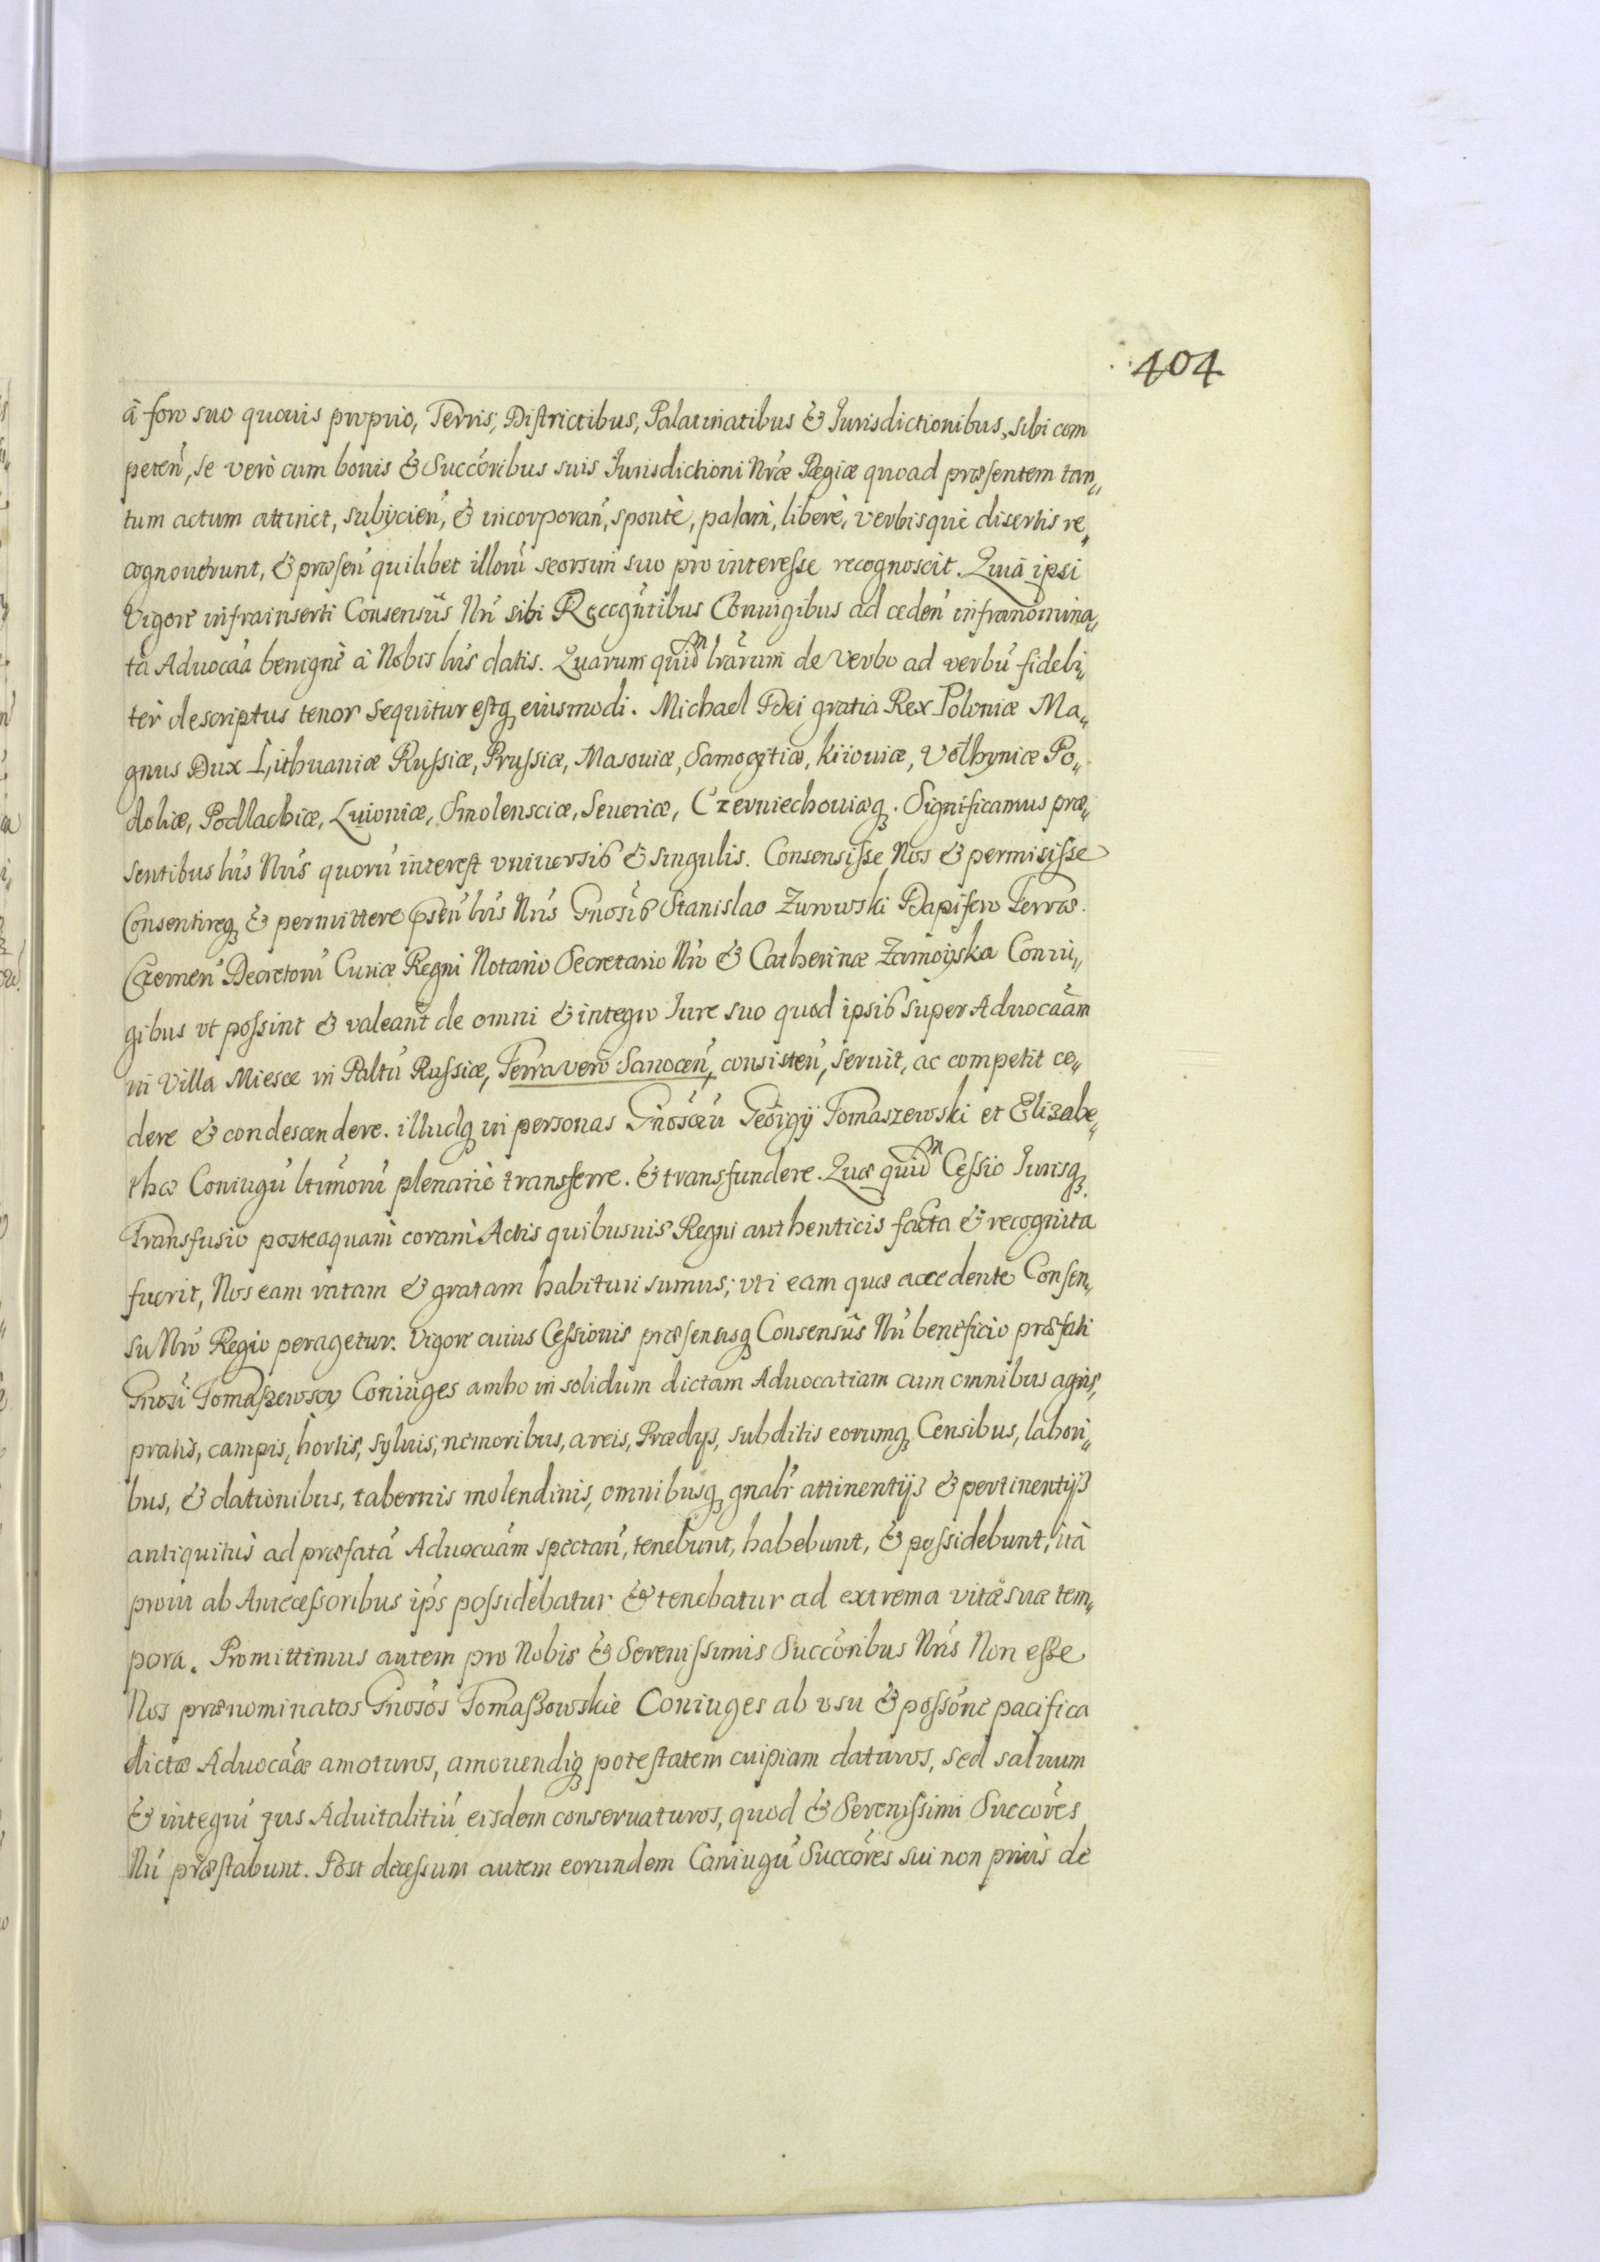 404
à foro suo quouis proprio, Terris, Districtibus, Palatinatibus & Jurisdictionibus, sibi com
peteñ, se verò cum bonis & Succoribus suis Jurisdictioni Nræ Regiæ quoad præsentem tan„
tum actum attinet, subycień, & incorporań, spontè, palam, liberè, verbisque disertis re„
cognouerunt, & præseń quilibet illorū seorsim suo pro interesse recognoscit. Quià ipsi
Vigore infrainserti Consensûs Nrī sibi Recognctibus Coniugibus ad cedeń infranomina„
tâ Aduocaã benignè à Nobis lris datis. Quarum quidm lrarum de verbo ad verbū fideli„
tèr descriptus tenor sequitur estq eiusmodi. Michael Dei gratia Rex Poloniæ Ma„
gnus Dux Lithuaniæ Russiæ, Prussiæ, Masouiæ, Samogitiæ, Kiiouiæ, Volhyniæ Po„
doliæ, Podlachiæ, Liuoniæ, Smolensciæ, Seueriæ, Czerniechouiæq. Significamus præ„
sentibus lris Nris quorū interest vniuersis & singulis. Consensisse Nos & permisisse
Consentireq & permittere pseńbus Nris Gnosis Stanislao Zurowski Dapifero Terræ.
Czerneń Decretorū Curiæ Regni Notario Secretario Nro & Catherinæ Zamoyska Coniu„
gibus vt possint & valeant de omni & integro Jure suo quod ipsis super Aduocaãm
in Villa Miesce in Paltū Russiæ, Terra verò Sanoceń, consisteń, seruit, ac competit ce„
dere & condescendere. illudq in personas Gnosoru Georgij Tomaszewski et Elizabe„
thæ Coniugū ltimorū plenariè transferre. & transfundere. Quæ quidm Cessio Jurisq
Transfusio posteaquam coram Actis quibusuis Regni authenticis facta & recognita
fuerit, Nos eam ratam & gratam habituri sumus; vti eam quæ accedente Consen„
su Nro Regio peragetur. Vigore cuius Cessionis præsentisq Consensûs Nri beneficio præfati
Gnosi Tomaszewscy Coniuges ambo in solidum dictam Aduocatiam cum omnibus agris,
pratis, campis, hortis, syluis, nemoribus, areis, Prædys, subditis eorumq Censibus, labori„
bus, & dationibus, tabernis molendinis, omnibusq gnalr attinentijs & pertinentijs
antiquitùs ad præfatã Aduocaãm spectań, tenebunt, habebunt, & possidebunt, ità
prout ab Antecessoribus ips possidebatur & tenebatur ad extrema vitæ suæ tem„
pora. Promittimus autem pro Nobis & Serenissimis Succoribus Nris Non esse
Nos prænominatos Gnosos Tomaszowskie Coniuges ab vsu & possone pacifica
dictæ Aduocaæ amoturos, amouendiq potestatem cuipiam daturos, sed saluum
& integrū jus Aduitalitiū eisdem conseruaturos, quod & Serenissimi Succores
Nri præstabunt. Post decessum autem eorundem Coniugū Succores sui non priùs de